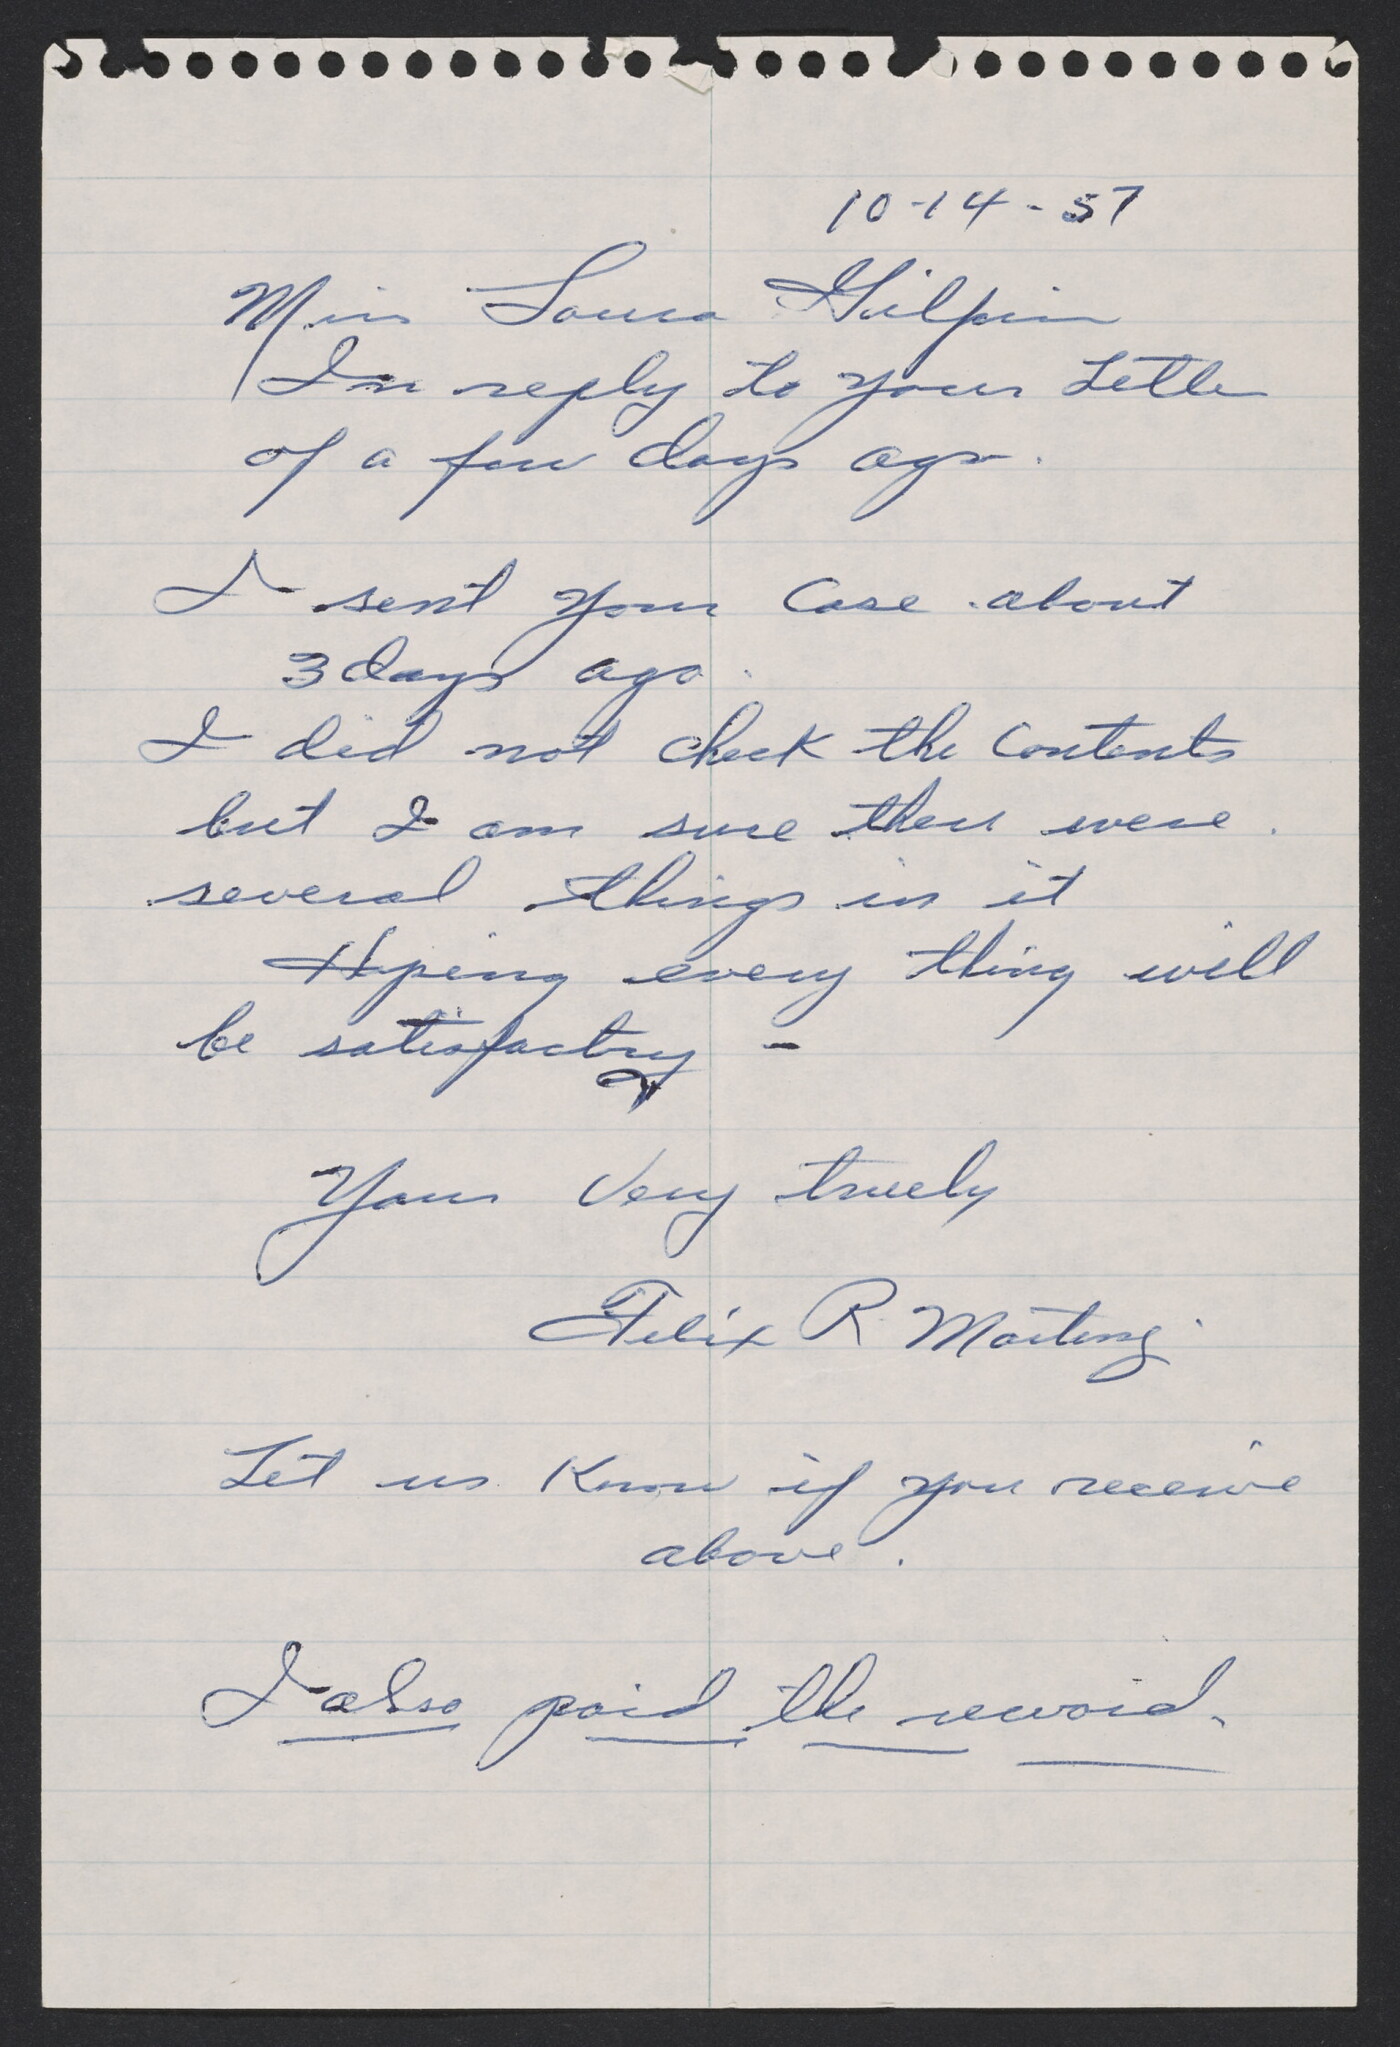 10-14-57
Miss Laura Gilpin
In reply to your Letter
of a few days ago.
I sent your Case about
3 days ago.
I did not check the Contents
but I am sure there were
several things in it
Hoping every thing will
be satisfactory -
Yours Very truely
Felix R Martinez
Let us Know if you receive
above.
I also paid the reward.